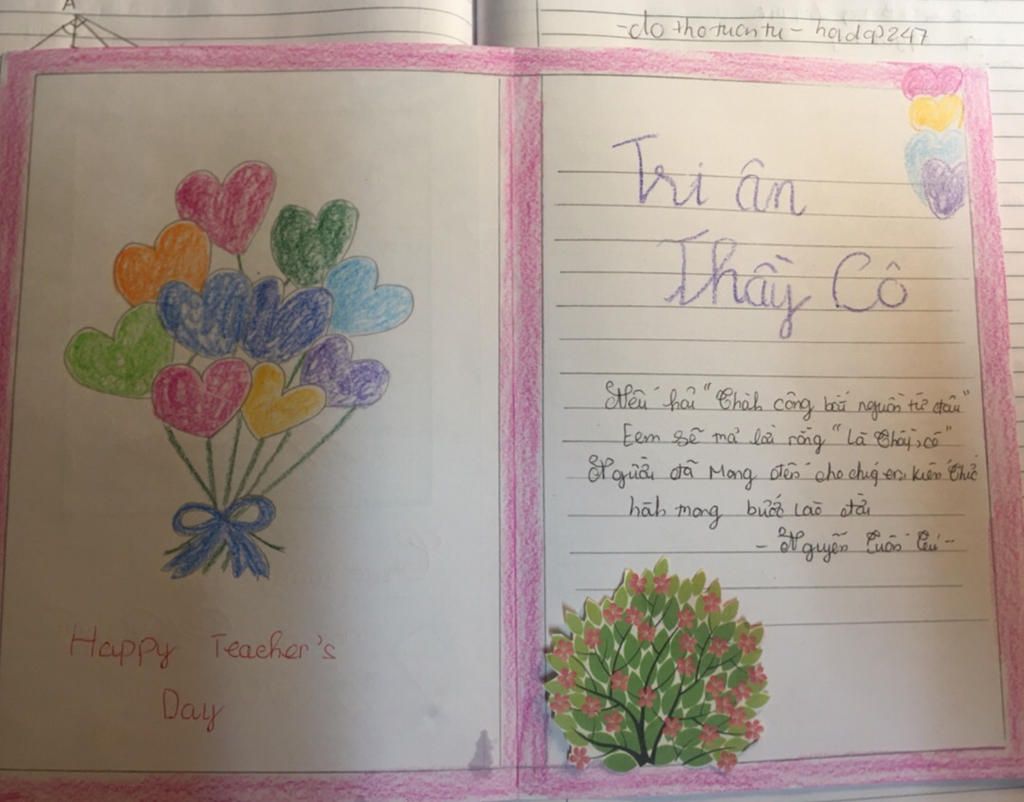 A
-do tho tuan tu - hqdqp247
Happy Teacher's
Day
Tri ân
Thầy Cô
Nếu hỏi "Thành công bắt nguồn từ đâu"
Eem sẽ trả lời rằng "Là Thầy, cô"
Người đã mang đến cho chúng em kiến thức
hành trang bước vào đời
- Nguyễn Tuấn Tú -